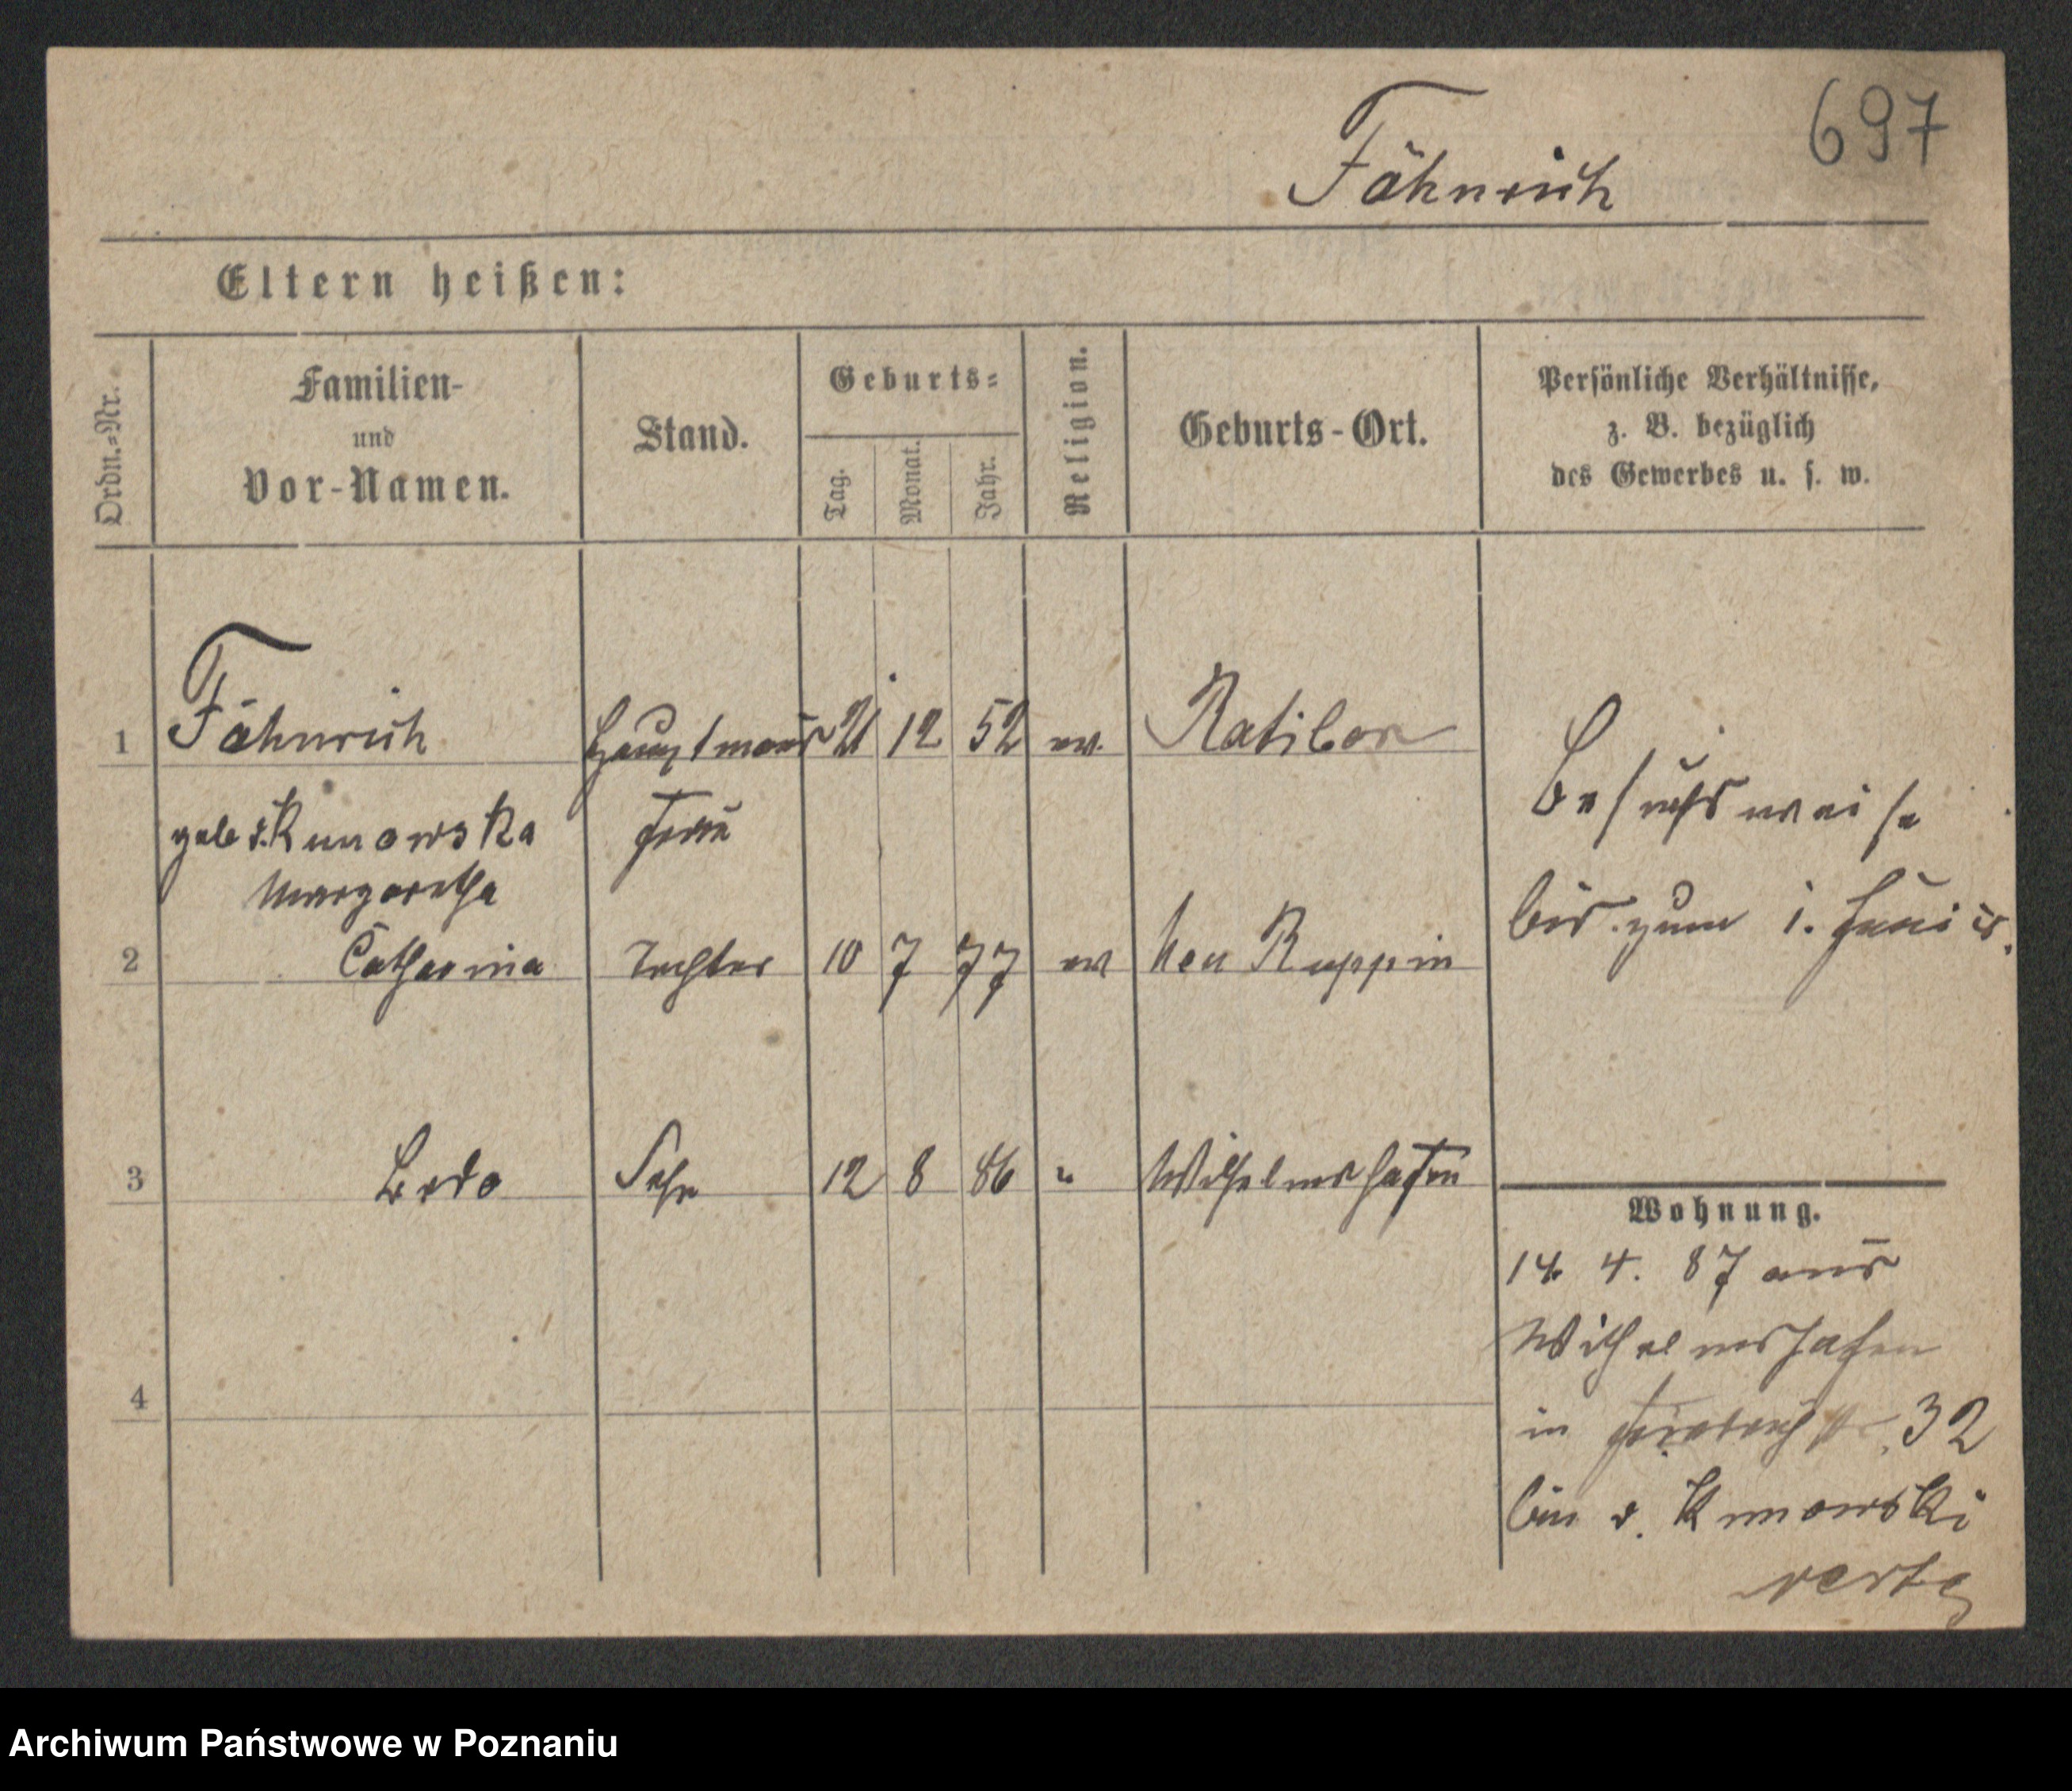 697
Fähnrich
Eltern heißen:
Ordn.=Nr.
Familien-
und
Vor-Namen.
Stand.
Geburts=
Tag.
Monat.
Jahr.
Religion.
Geburts-Ort.
Persönliche Verhältnisse,
z. B. bezüglich
des Gewerbes u. s. w.
1 Fähnrich Hauptmanns 21 12 52 ev. Ratibor
geb v. Kunowska Frau
Margaretha
Besuchsweise
bis zum 1. Juni
2 Catharina Tochter 10 7 77 ev Neu Ruppin
3 Bodo Sohn 12 8 86 " Wilhelmshafen
4
Wohnung.
14. 4. 87 aus
Wilhelmshafen
in 32
bei v. Kunowski
verte
Archiwum Państwowe w Poznaniu